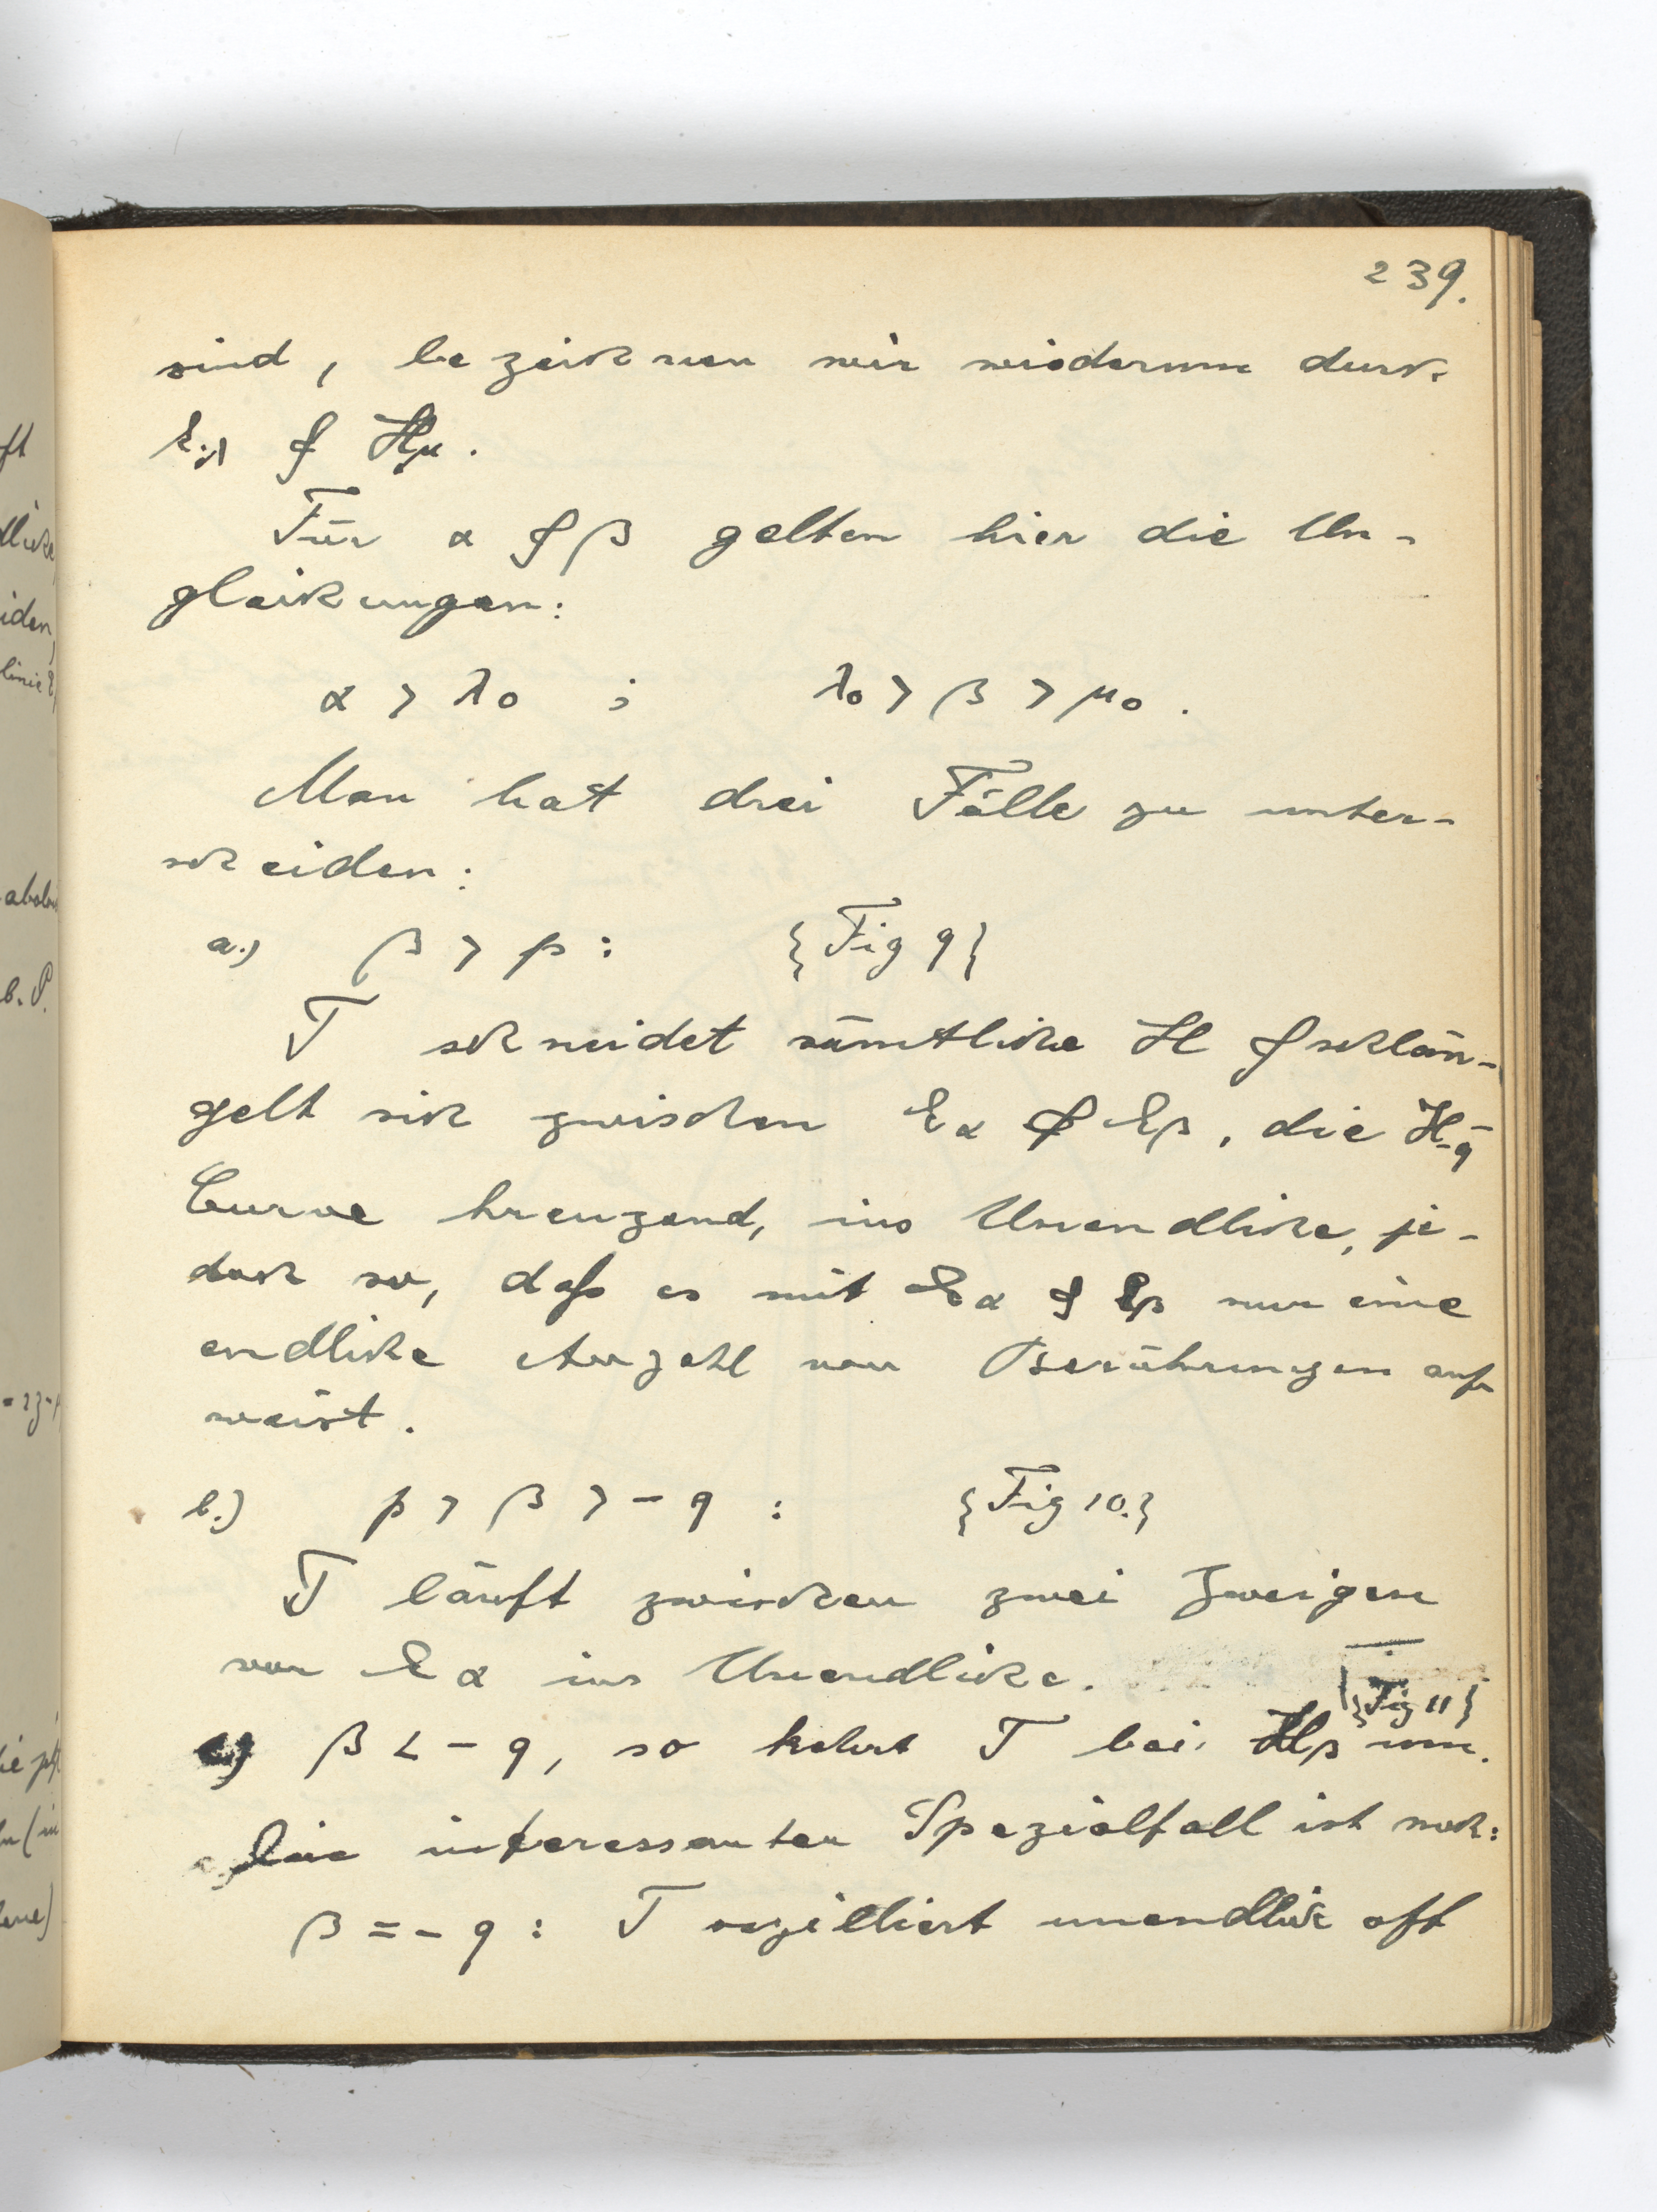 239.
sind, bezeichnen wir wiederum durch
E_λ & H_μ.
Für α & β gelten hier die Un-
gleichungen:
α > λ₀ ; λ₀ > β > μ₀.
Man hat drei Fälle zu unter-
scheiden:
a.) β > p : {Fig 9}
T schneidet sämtliche H & schlän-
gelt sich zwischen E_α & E_β, die H_-q-
Curve kreuzend, ins Unendliche, je-
doch so, daß es mit E_α & E_β nur eine
endliche Anzahl von Berührungen auf-
weist.
b.) p > β > - q : {Fig 10.}
T läuft zwischen zwei Zweigen
von E_α ins Unendliche.
{Fig 11}
c.) β < - q, so kehrt T bei H_β um.
Ein interessanter Spezialfall ist noch:
β = - q : T oszilliert unendlich oft